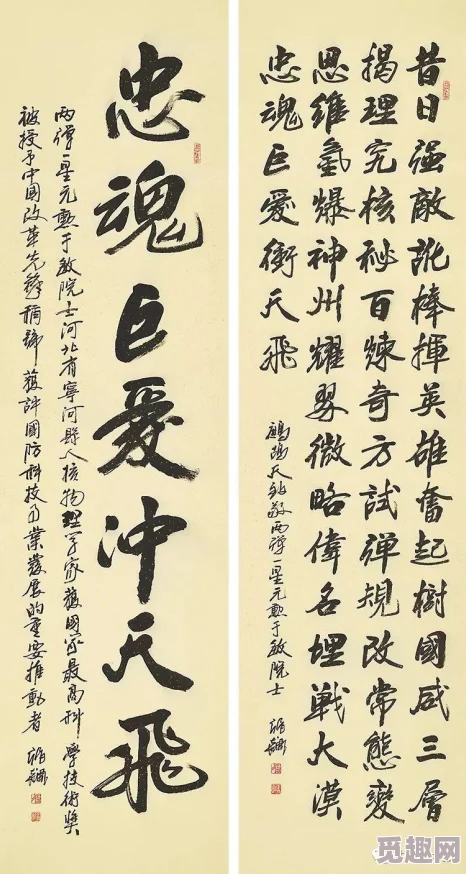 昔日强敵訛棒揮英雄奮起樹國威三層
揭理究核秘百煉奇方試彈規改常態變
思維氫爆神州耀翠微略偉名埋戰大漠
忠魂巨愛衝天飛
鷓鴣天致敬两彈一星元勳于敏院士
忠魂巨愛冲天飛
两彈一星元勳于敏院士河北省寧河縣人核物理學家獲國家最高科學技術獎
被授予中國改革先鋒稱號獲評國防科技事業發展的重要推動者
觅趣网